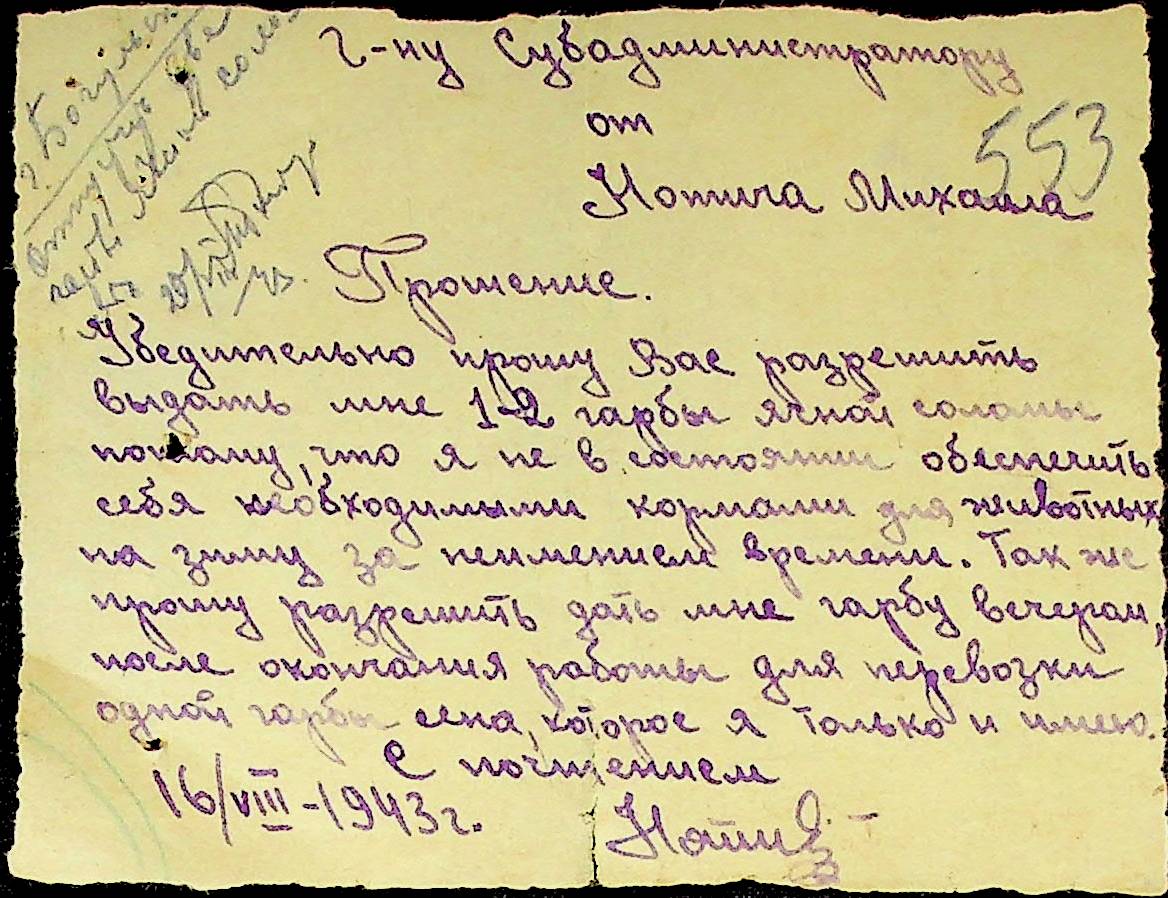 г. Богуль
отпустить две
г-ну Субадминистратору
от
553
Нотича Михаила
Прошение.
Убедительно прошу Вас разрешить
выдать мне 1-2 гарбы ячной соломы
потому, что я не в состоянии обеспечить
себя необходимыми кормами для животных
на зиму за неимением времени. Так же
прошу разрешить дать мне гарбу вечером,
после окончания работы для перевозки
одной гарбы сена, которое я только и имею.
С почтением
16/VIII-1943 г.